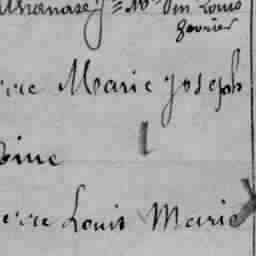 Athanase J= Mie
Louis
Janvier
rre Marie Joseph
oine
erre Louis Marie